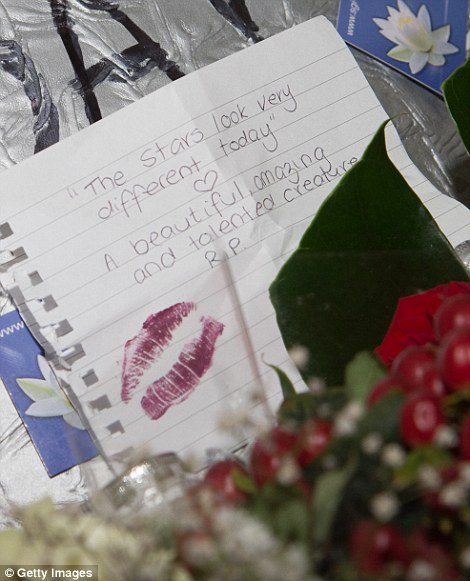 "The Stars look very
different today"
A beautiful, amazing
and talented creature
R.I.P.
www
© Getty Images